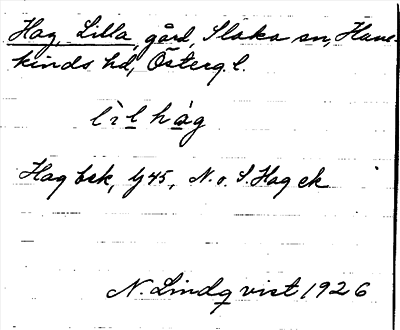 Hag, Lilla, gård, Slaka sn, Hane-
kinds hd, Österg. l.
lìl hàg
Hag bsk, G45, N. o. S. Hag ek
N. Lindqvist 1926